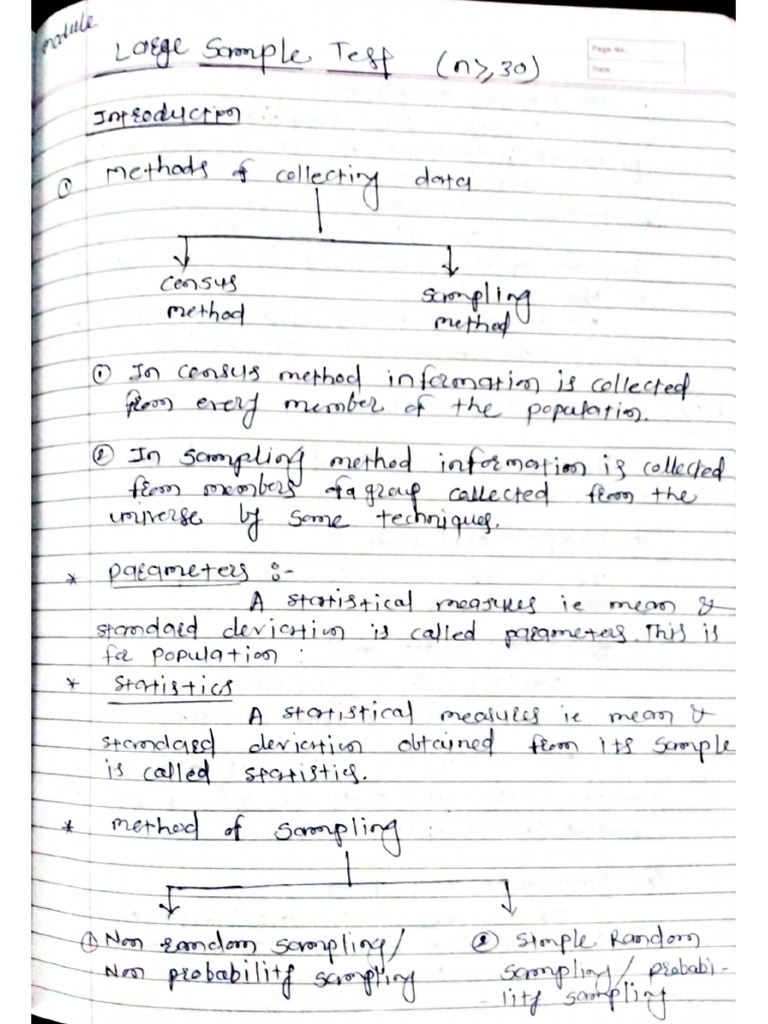 module
Large Sample Test (n≥30)
Page No.
Date
Introduction
① methods of collecting data
census method
sampling method
① In census method information is collected
from every member of the population.
② In sampling method information is collected
from members of a group collected from the
universe by some techniques.
* parameters :-
A statistical measures ie mean &
standard deviation is called parameters. This is
for population
* statistics
A statistical measures ie mean &
standard deviation obtained from its sample
is called statistics.
* method of sampling
① Non random sampling/
Non probability sampling
② Simple Random
sampling/ probabi-
-lity sampling